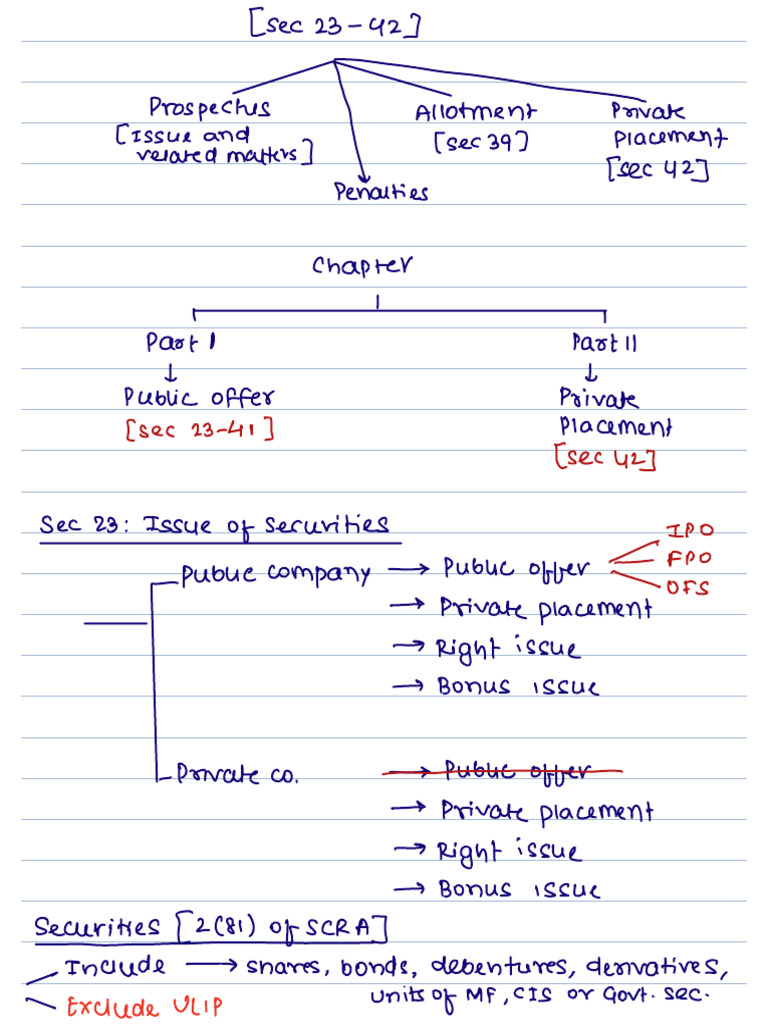 [sec 23-42]
Prospectus
[Issue and
related matters]
Allotment
[sec 39]
Private
placement
[sec 42]
Penalties
Chapter
Part I
Public offer
[sec 23-41]
Part II
Private
Placement
[sec 42]
Sec 23: Issue of securities
Public company → Public offer
IPO
FPO
OFS
→ Private placement
→ Right issue
→ Bonus issue
Private co. → Public offer
→ Private placement
→ Right issue
→ Bonus issue
Securities [2(81) of SCRA]
Include → shares, bonds, debentures, derivatives,
units of MF, CIS or Govt. sec.
Exclude ULIP